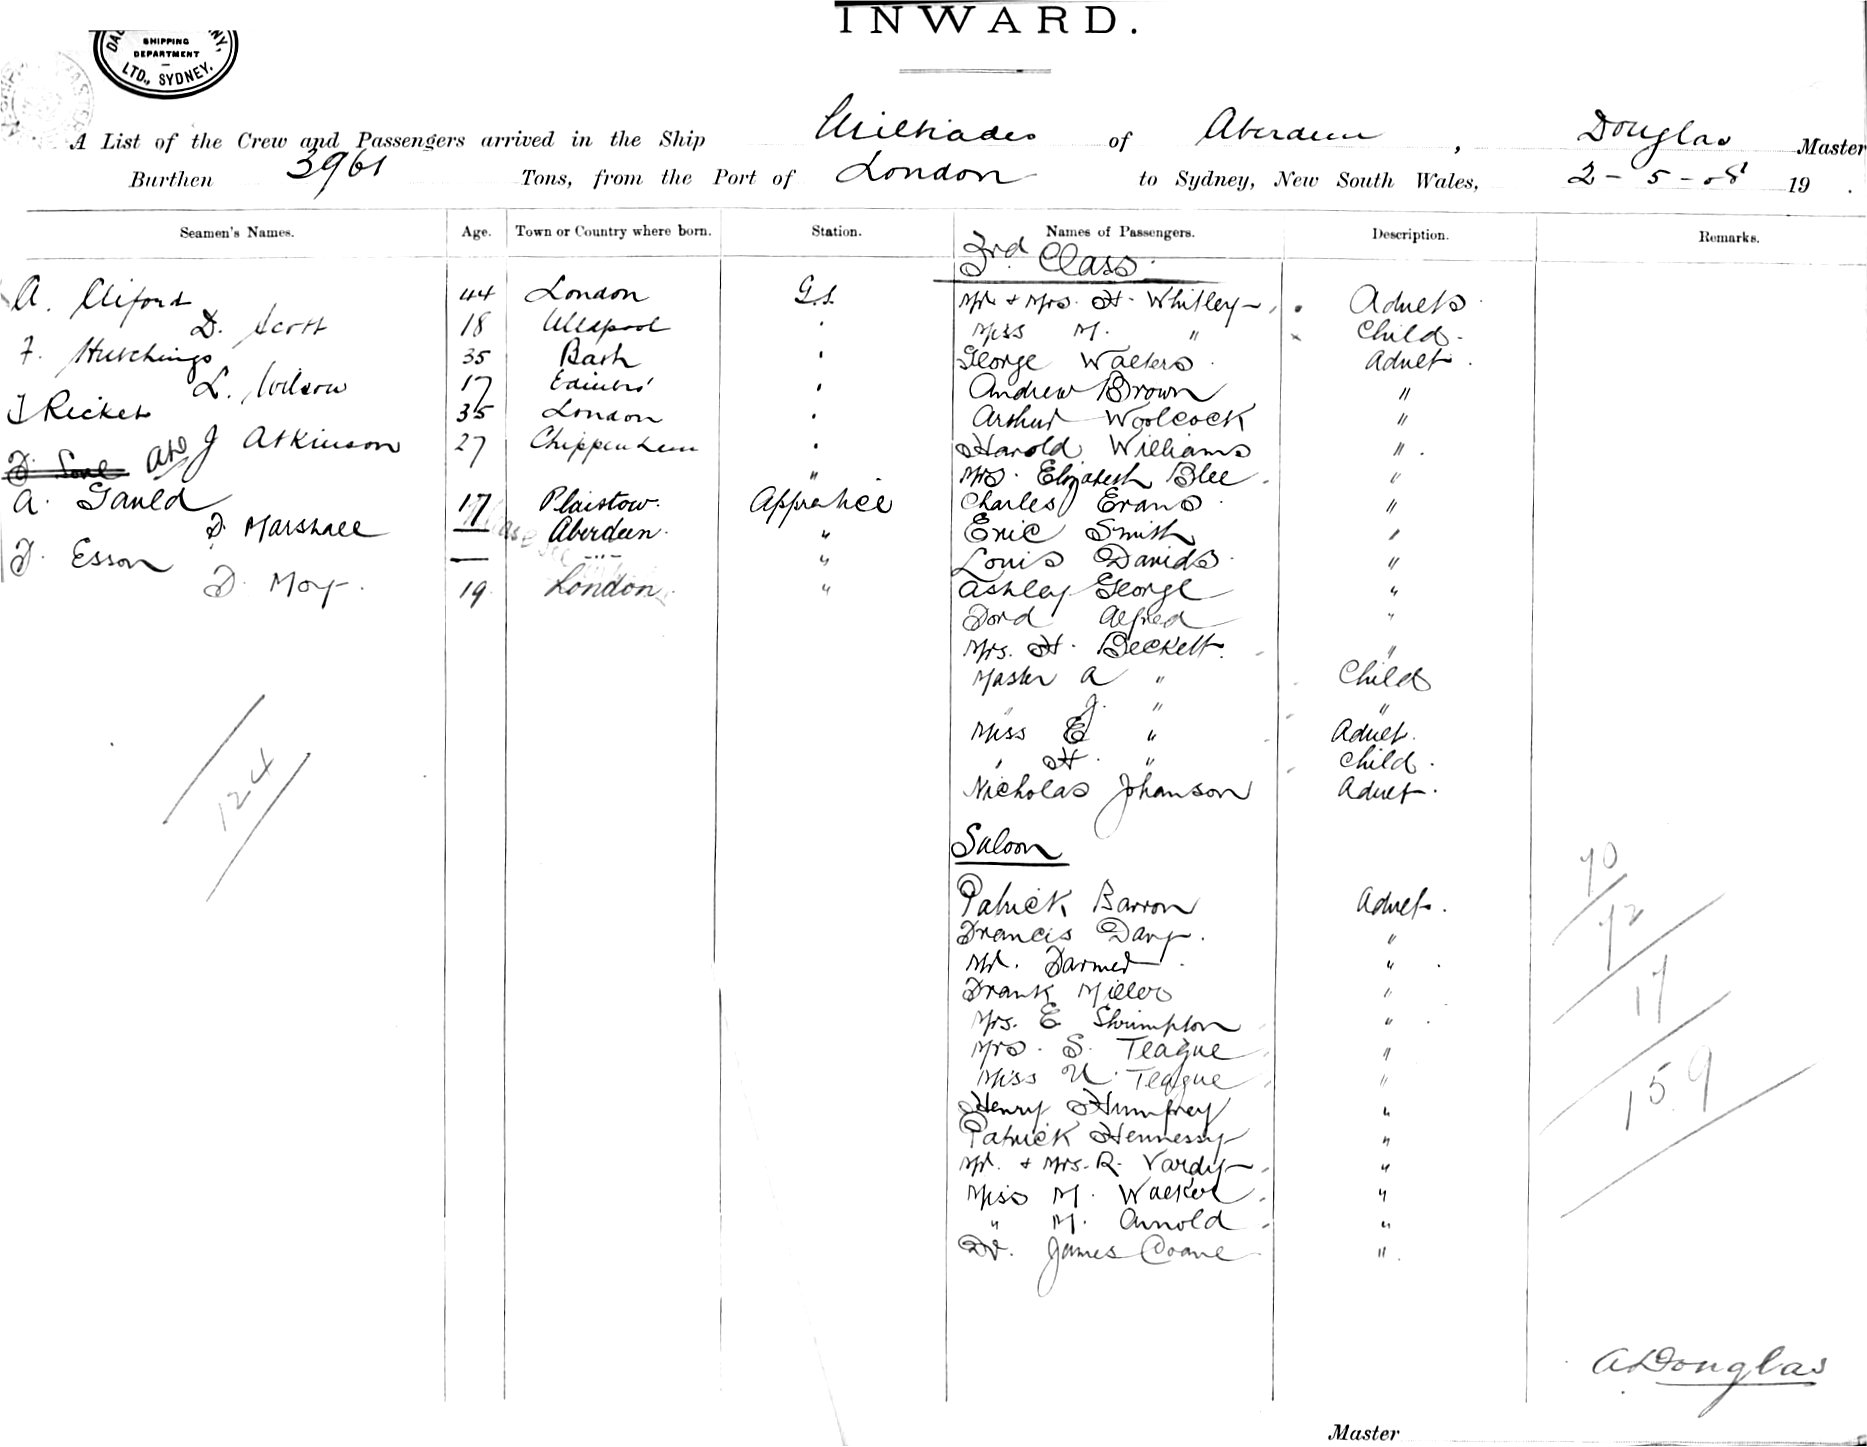 INWARD.
SHIPPING
DEPARTMENT
LTD., SYDNEY.
A List of the Crew and Passengers arrived in the Ship Miltiades of Aberdeen, Douglas Master
Burthen 3961 Tons, from the Port of London to Sydney, New South Wales, 2-5-08 19 .
Seamen's Names. Age. Town or Country where born. Station. Names of Passengers. Description. Remarks.
3rd Class
A. Cliford 44 London G.S. Mr & Mrs. H. Whitley Adults
D. Scott 18 Ullapool Miss M. " Child.
F. Hutchings 35 Bath George Walters Adult.
L. Wilson 17 Edinbro' Andrew Brown "
F Ricket 35 London Arthur Woolcock "
J Atkinson 27 Chippenham Harold Williams "
" Mrs. Elizabeth Blee "
A. Gauld 17 Plaistow. Apprentice Charles Evans "
D. Marshall — Aberdeen. " Eric Smith "
F. Esson — -"- " Louis Davids "
F. Moy. 19 London. " Ashley George "
Ford Alfred "
Mrs. H. Beckett. "
Master A " Child
" J. " "
Miss E " Adult.
" H. " Child.
Nicholas Johanson Adult.
Saloon
Patrick Barron Adult.
Francis Davy. "
Mr. Farmer "
Frank Miller "
Mrs. E Shrimpton "
Mrs. S. Teague "
Miss U. Teague "
Henry Humfrey "
Patrick Hennessy "
Mr. & Mrs. R. Vardy "
Miss M. Walker "
" M. Arnold "
Dr. James Doane "
124
70
72
17
159
A Douglas
Master